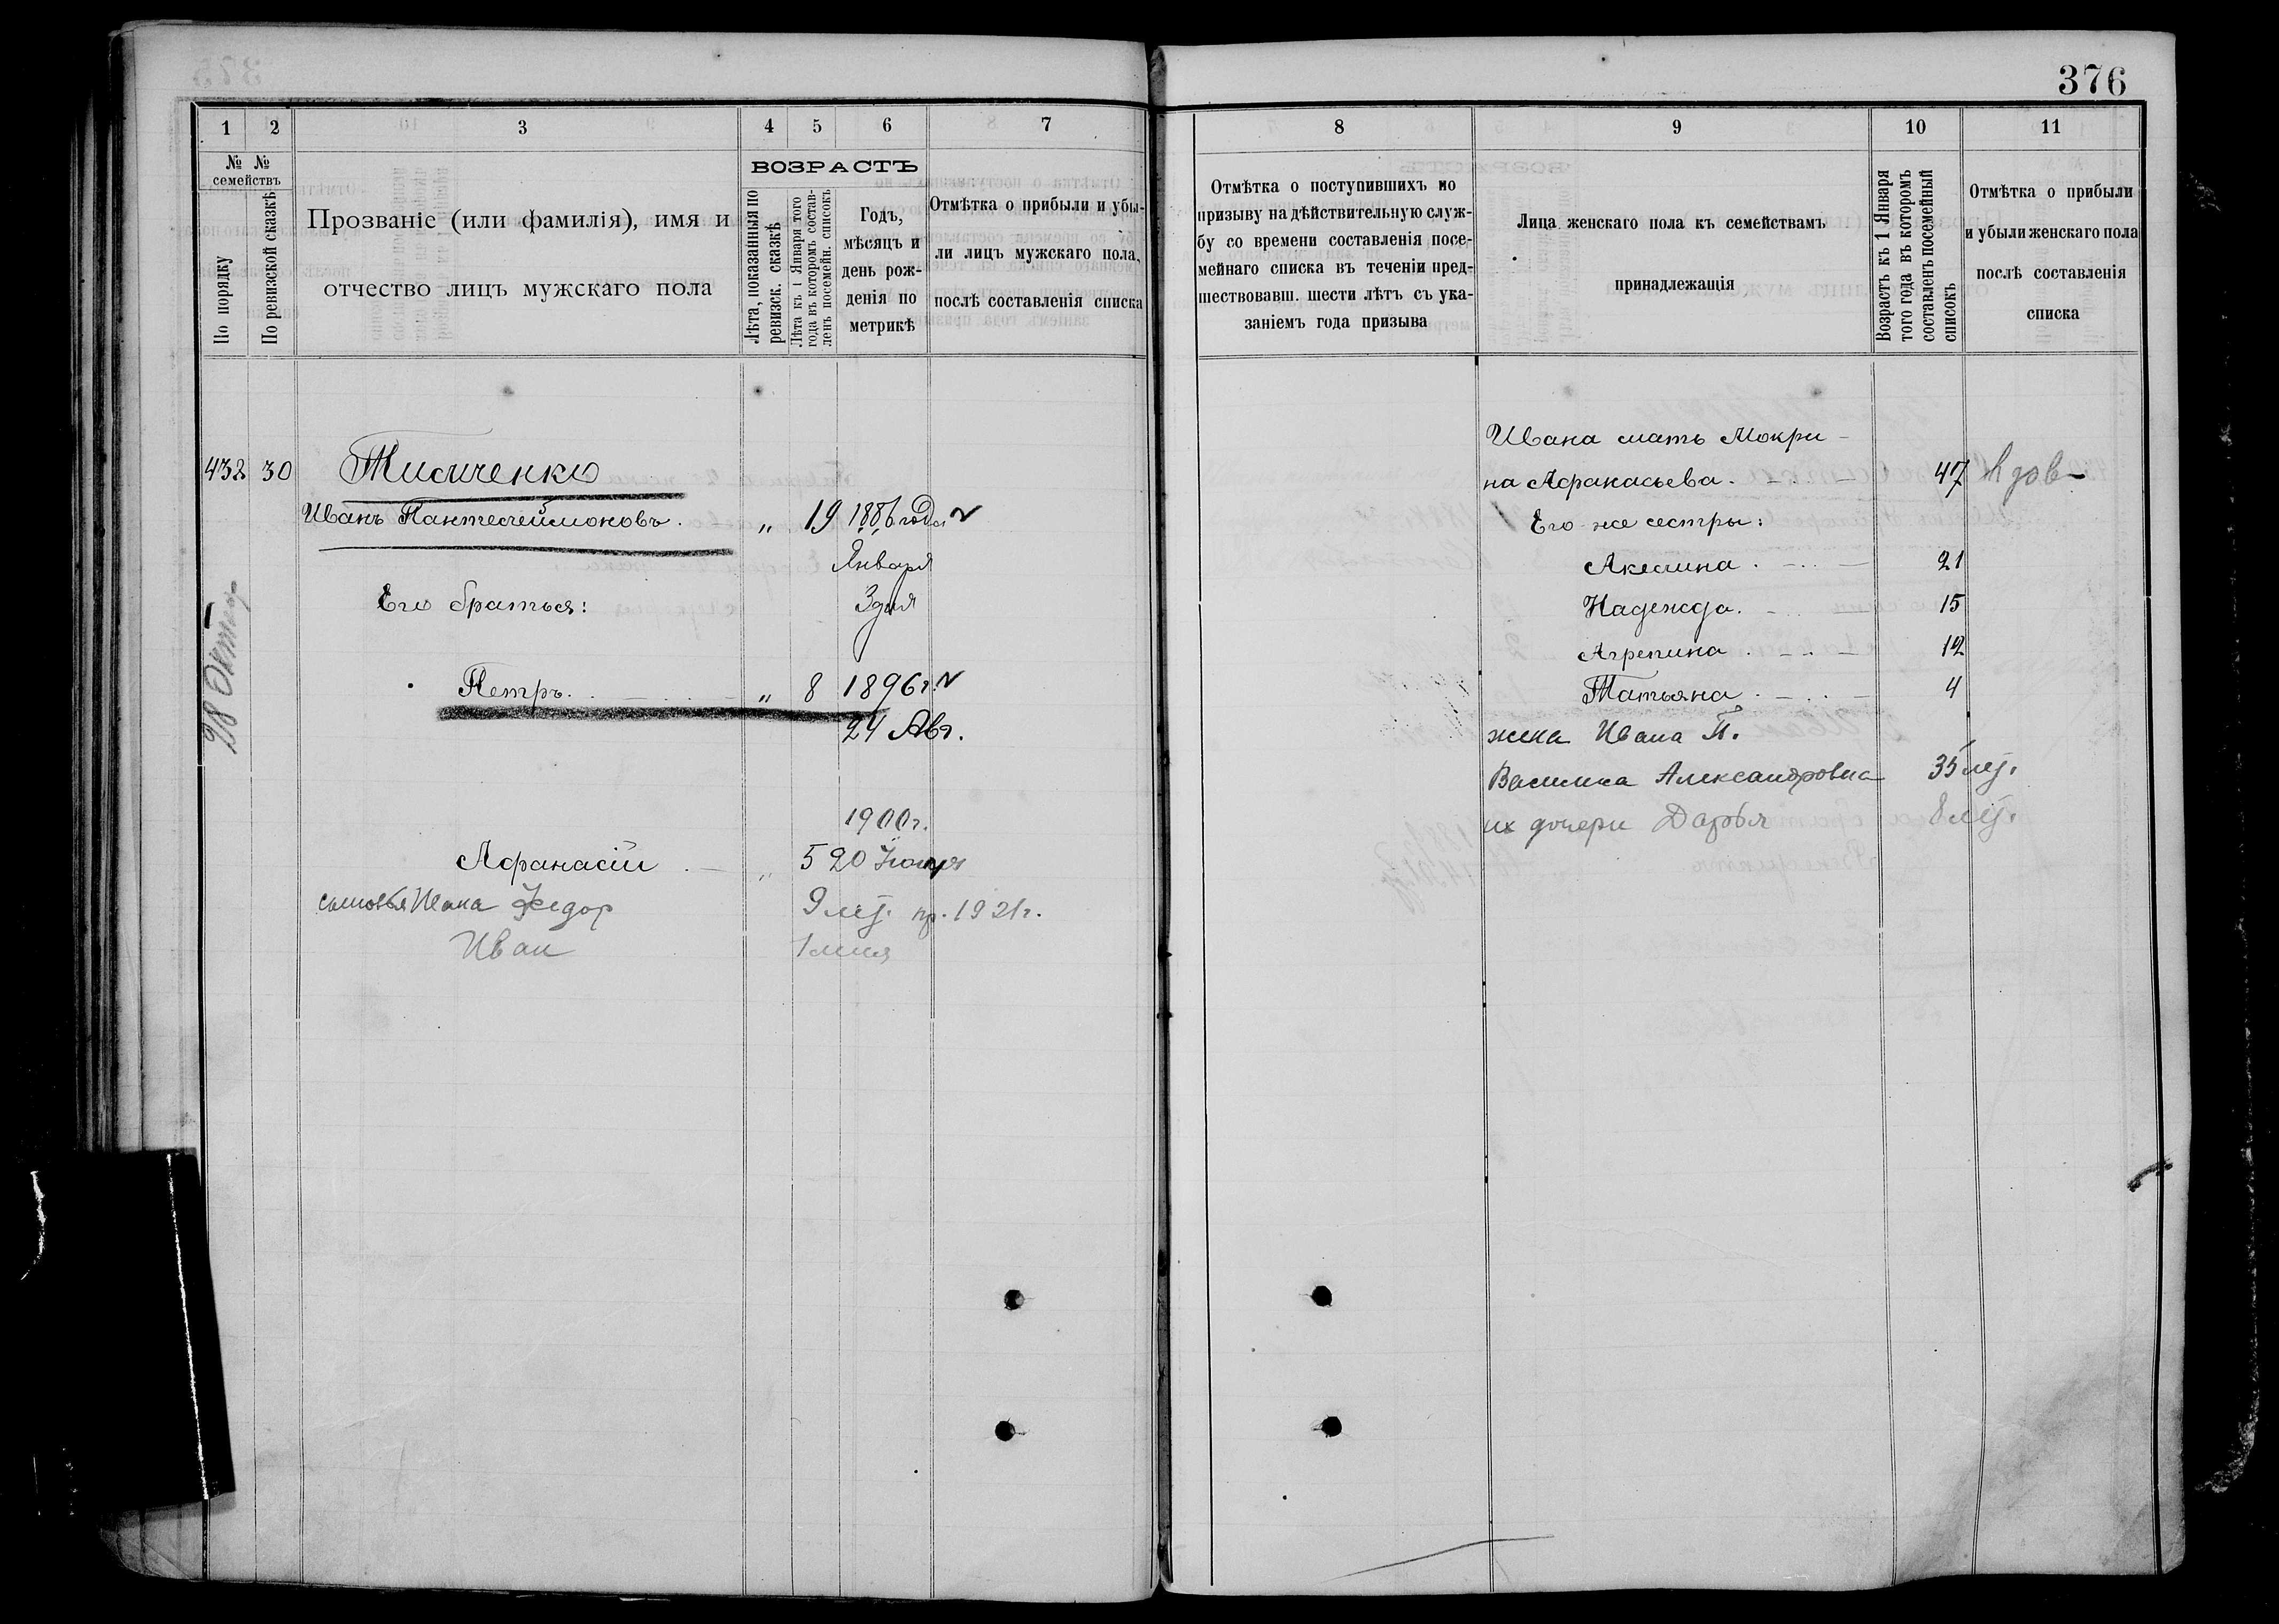 376
1 2 3 4 5 6 7
№ №
семействъ
По порядку
По ревизской сказкѣ
Прозваніе (или фамилія), имя и
отчество лицъ мужскаго пола
ВОЗРАСТЪ
Лѣта, показанныя по
ревизск. сказкѣ
Лѣта къ 1 Января того
года въ которомъ состав-
ленъ посемейн. списокъ
Годъ,
мѣсяцъ и
день рож-
денія по
метрикѣ
Отмѣтка о прибыли и убы-
ли лицъ мужскаго пола,
послѣ составленія списка
432 30
Иванъ Пантелеймоновъ. „ 19 1886 года
Января
Его братья: 3 дня
28 Октяб
Петръ. „ 8 1896 г.
24 Авг.
1900 г.
Афанасій „ 5 20
сыновья Ивана Федор 9 лет. пр. 1921 г.
Иван
8 9 10 11
Отмѣтка о поступившихъ по
призыву на дѣйствительную служ-
бу со времени составленія посе-
мейнаго списка въ теченіи пред-
шествовавш. шести лѣтъ съ ука-
заніемъ года призыва
Лица женскаго пола къ семействамъ
принадлежащія
Возрастъ къ 1 Января
того года въ которомъ
составленъ посемейный
списокъ
Отмѣтка о прибыли
и убыли женскаго пола
послѣ составленія
списка
Ивана мать Мокри-
на Афанасьева. 47
Его же сестры:
Акилина. 21
Надежда. 15
Агрепина. 12
Татьяна. 4
жена Ивана П.
Василиса Александровна 35 лет.
их дочери Дарья 8 лет.